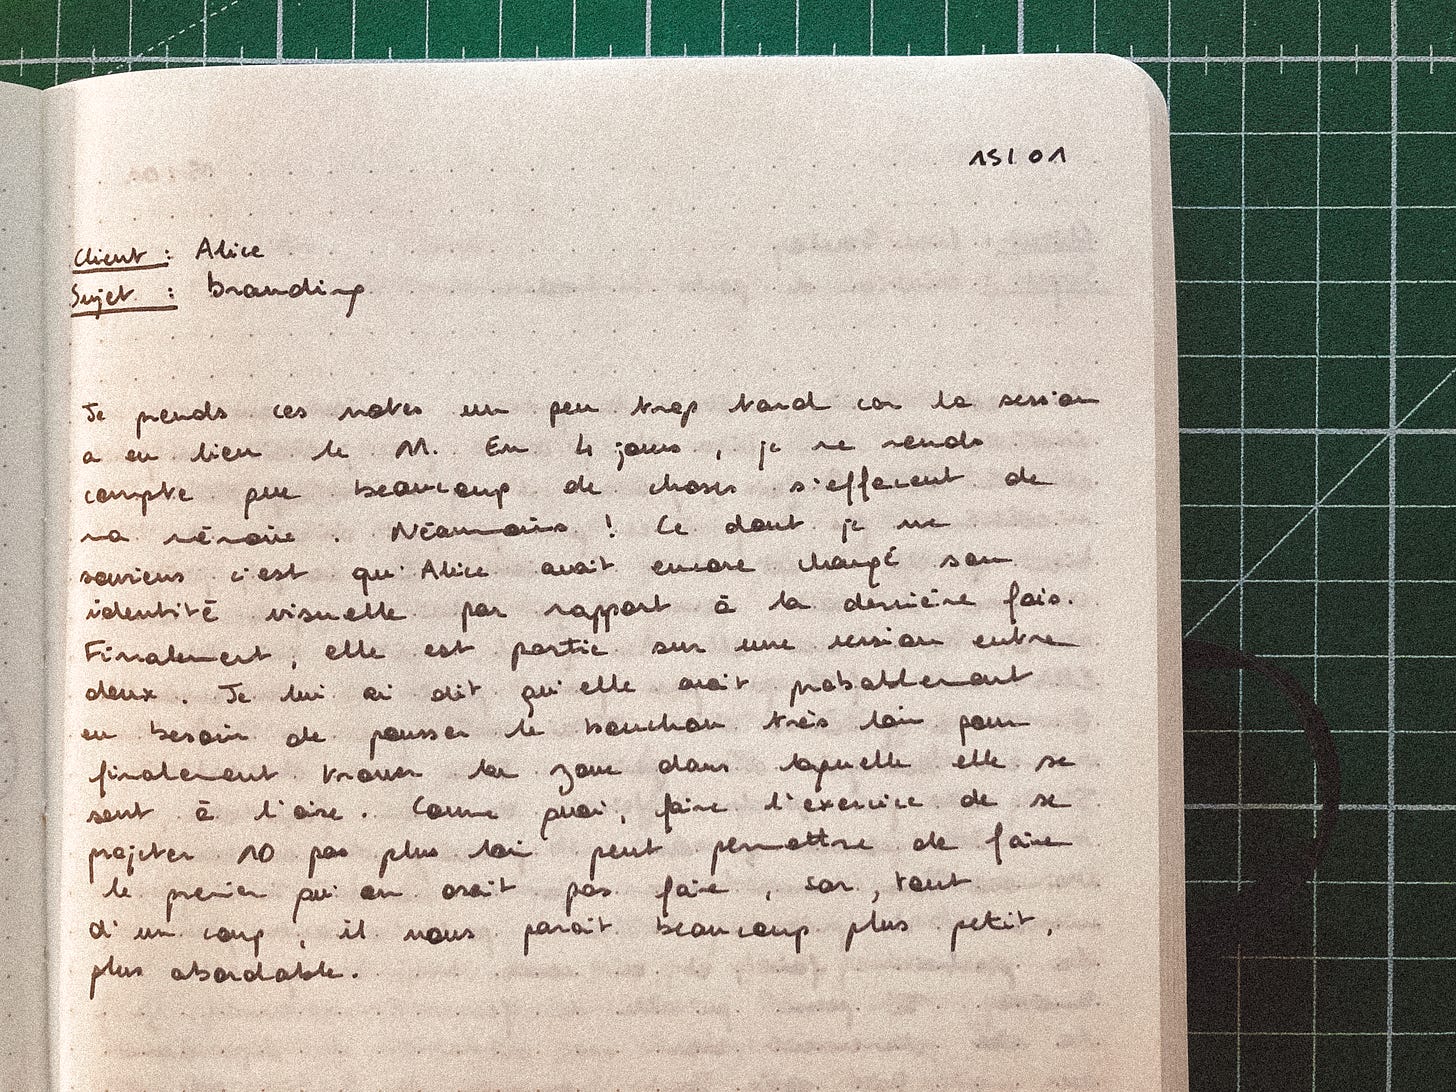 15/01
Client : Alice
Sujet : branding
Je prends ces notes un peu trop tard car la session
a eu lieu le 11. En 4 jours, je me rends
compte que beaucoup de choses s'effacent de
ma mémoire. Néanmoins ! Ce dont je me
souviens c'est qu'Alice avait encore changé son
identité visuelle par rapport à la dernière fois.
Finalement, elle est partie sur une version entre
deux. Je lui ai dit qu'elle avait probablement
eu besoin de pousser le bouchon très loin pour
finalement trouver la zone dans laquelle elle se
sent à l'aise. Comme quoi, faire l'exercice de se
projeter 10 pas plus loin peut permettre de faire
le premier qu'on osait pas faire, car, tout
d'un coup, il nous parait beaucoup plus petit,
plus abordable.